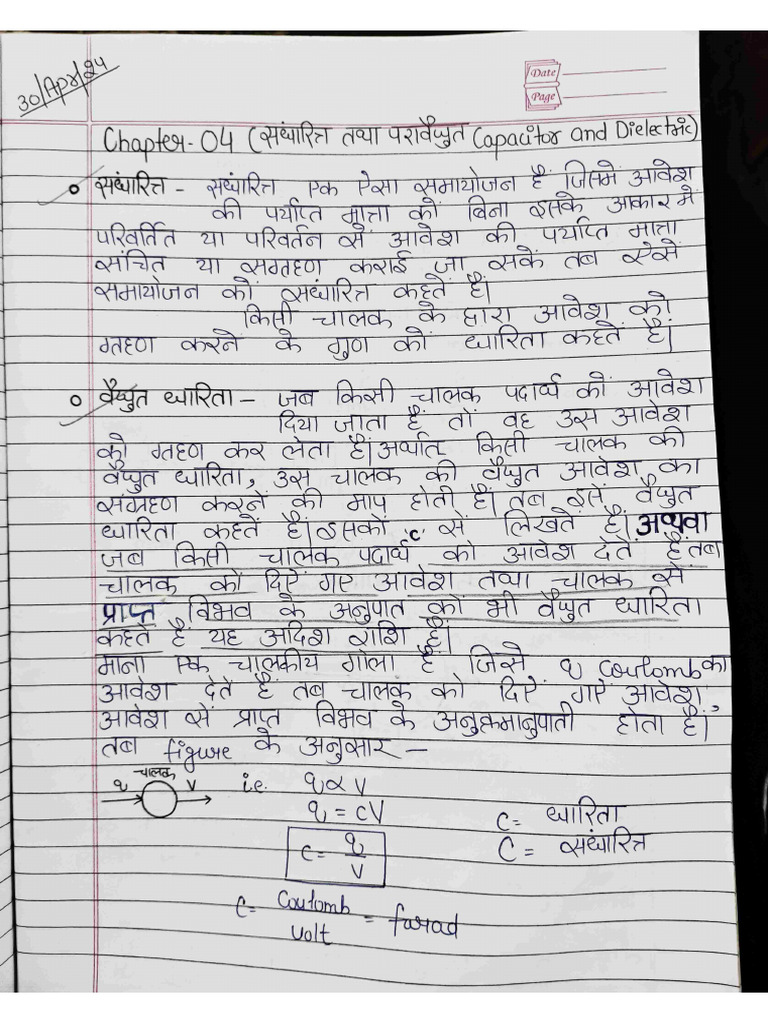 30/Apr/24
Date
Page
Chapter-04 (संधारित्र तथा परावैद्युत Capacitor and Dielectric)
संधारित्र - संधारित्र एक ऐसा समायोजन है जिसमें आवेश
की पर्याप्त मात्रा को बिना इसके आकार में
परिवर्तित या परिवर्तन सें आवेश की पर्याप्त मात्रा
सांचित या सग्रहण कराई जा सकें तब ऐसें
समायोजन कों संधारित्र कहतें हैं।
किसी चालक के द्वारा आवेश को
ग्रहण करनें के गुण कों धारिता कहतें हैं।
वैद्युत धारिता - जब किसी चालक पदार्थ कों आवेश
दिया जाता हैं तों वह उस आवेश
को ग्रहण कर लेता हैं। अर्थात किसी चालक की
वैद्युत धारिता, उस चालक की वैद्युत आवेश का
संग्रहण करनें की माप होती हैं। तब इसें वैद्युत
धारिता कहतें हैं। इसकों 'c' सें लिखतें हैं। अथवा
जब किसी चालक पदार्थ को आवेश देतें हैं तब
चालक कों दिऐं गए आवेश तथा चालक सें
प्राप्त विभव के अनुपात कों भी वैद्युत धारिता
कहतें है यह अदिश राशि हैं।
माना एक चालकीय गोला हैं जिसें q coulomb का
आवेश देतें हैं तब चालक को दिऐं गऐं आवेश,
आवेश सें प्राप्त विभव के अनुक्रमानुपाती होता हैं।
तब figure के अनुसार -
चालक
q V i.e. q ∝ V
q = cV
c = धारिता
c = q/V
C = संधारित्र
C = Coulomb/Volt = farad